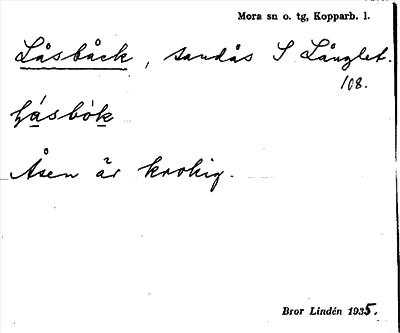 Mora sn o. tg, Kopparb. l.
Låsbåck, sandås S Långlet.
108.
lásbók
Åsen är krokig.
Bror Lindén 1935.